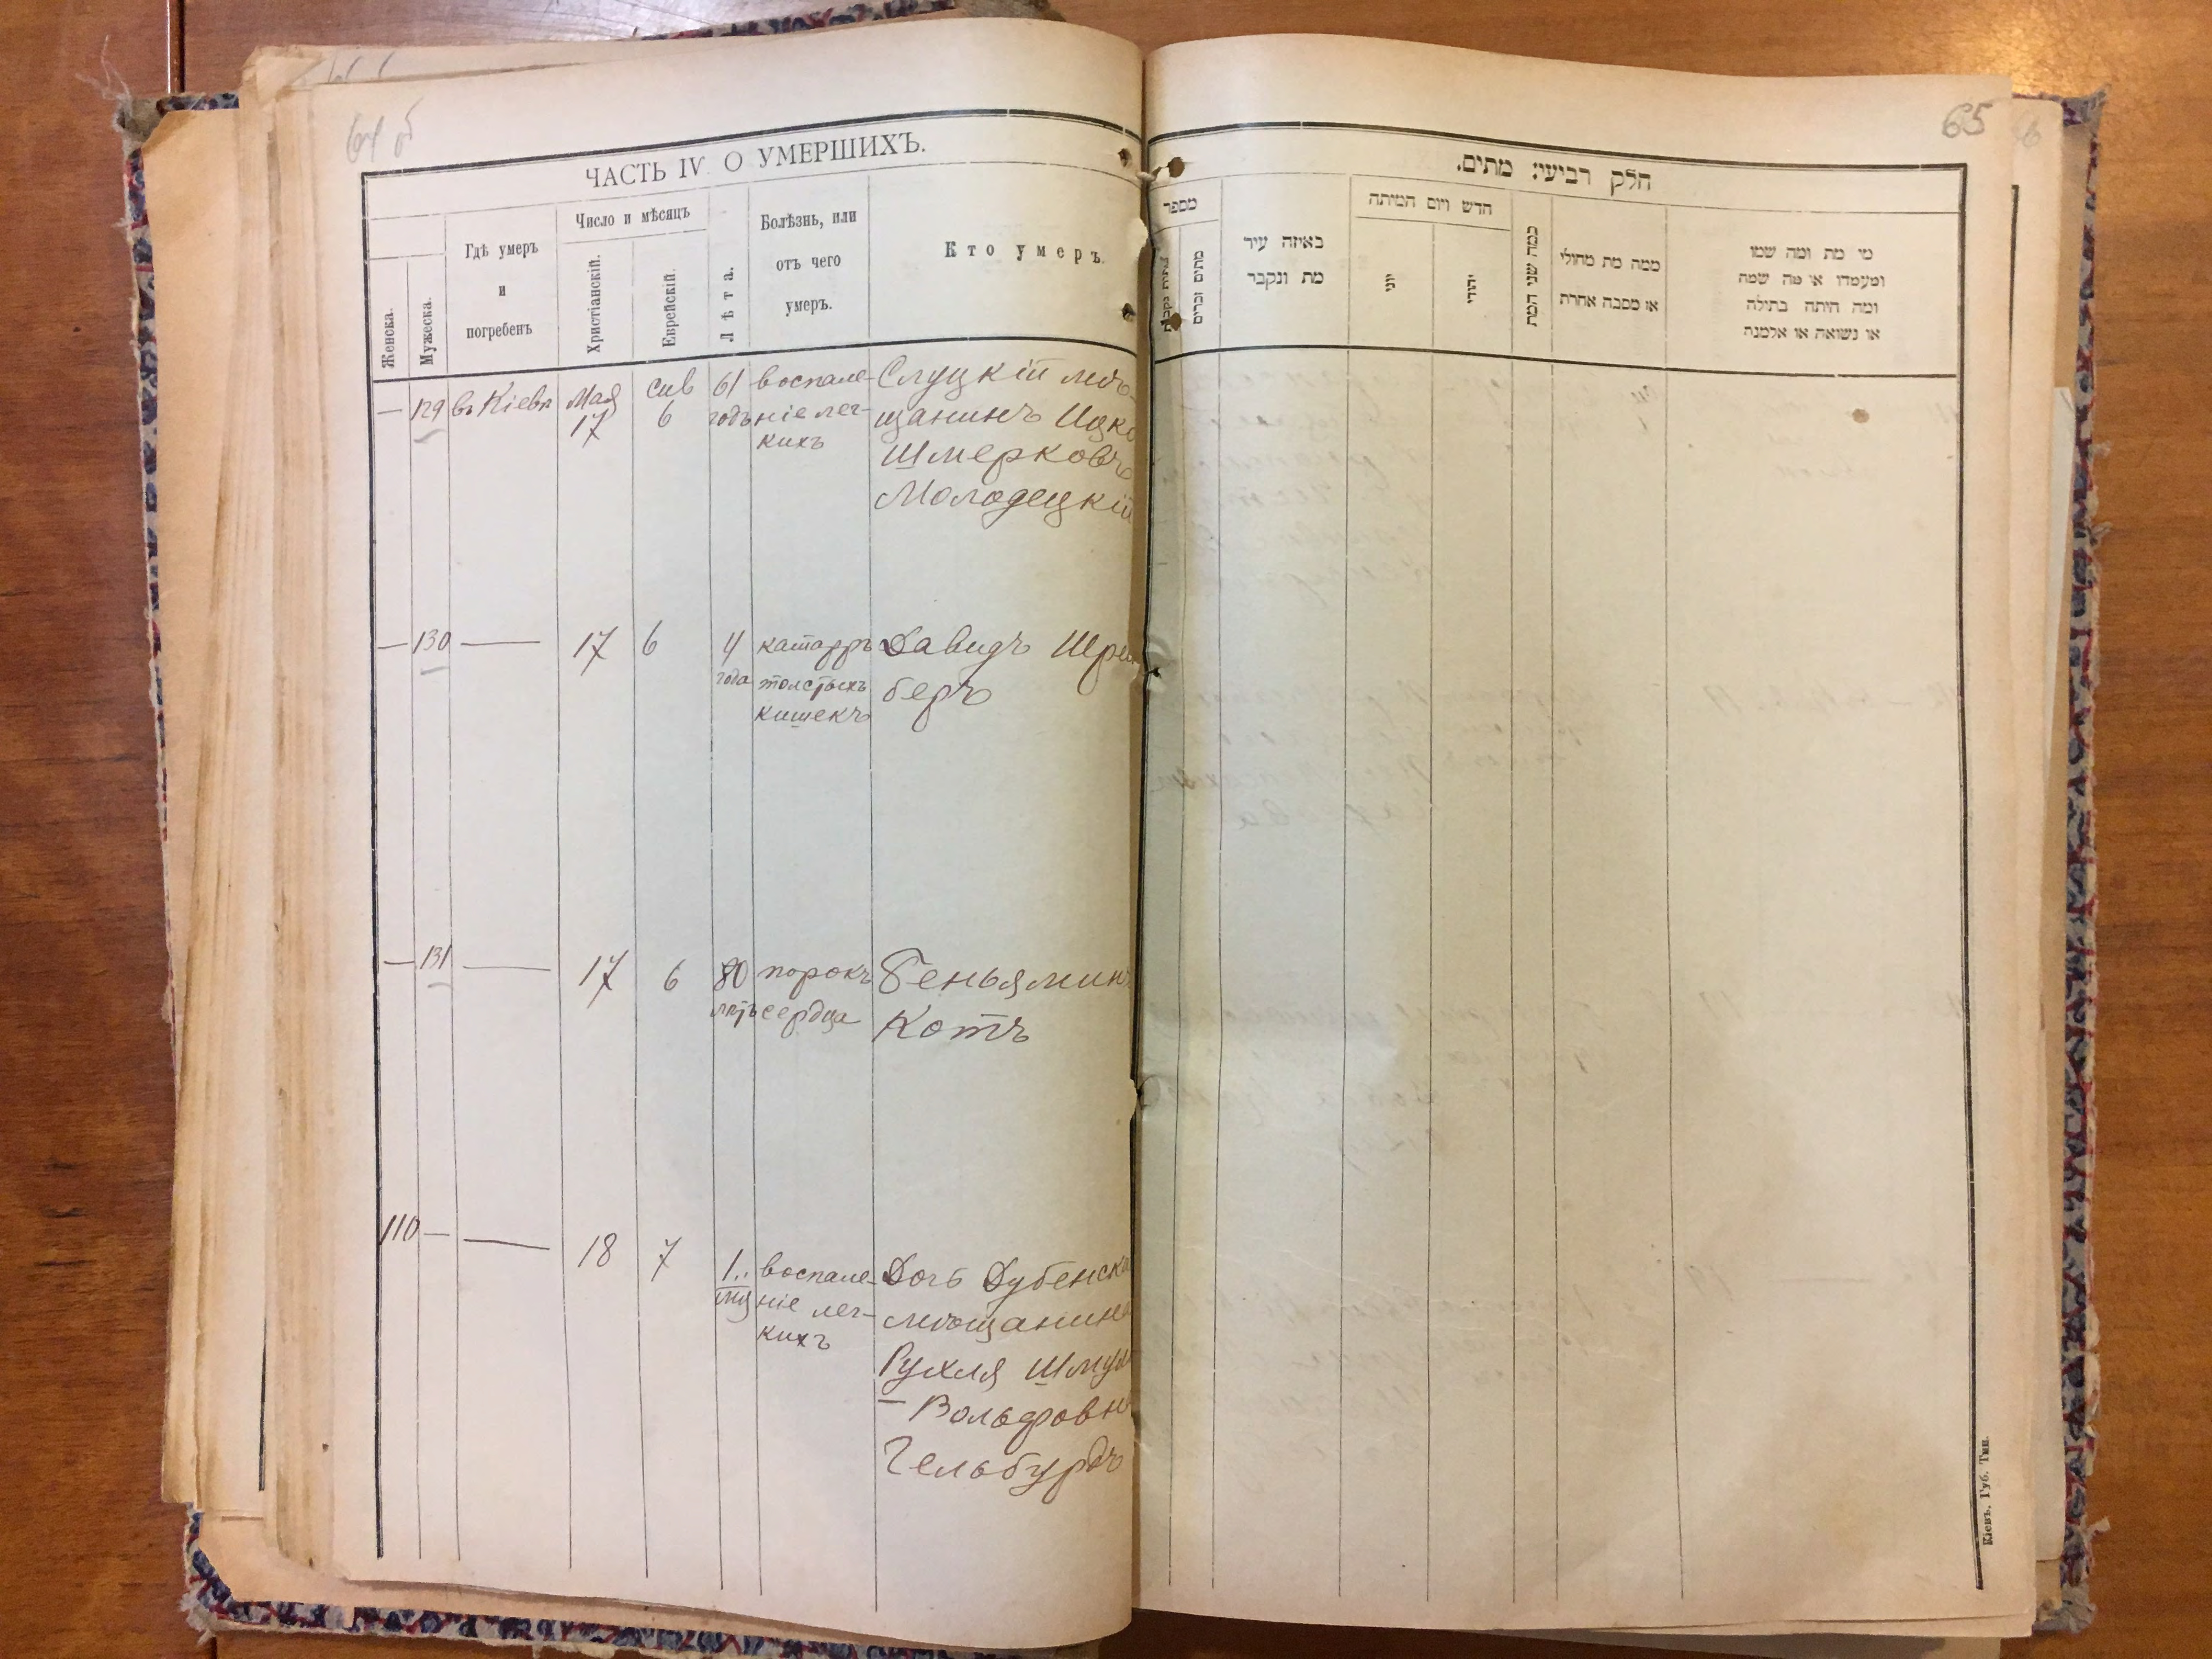 64 об
ЧАСТЬ IV О УМЕРШИХЪ.
Женска.
Мужеска.
Гдѣ умеръ
и
погребенъ
Число и мѣсяцъ
Христіанскій.
Еврейскій.
Лѣта.
Болѣзнь, или
отъ чего
умеръ.
Кто умеръ.
— 129 въ Кіевѣ Мая сив 61 воспале- Слуцкій мѣ-
17 6 годъ ніе лег- щанинъ Ицко
кихъ Шмерковъ
Молодецкій
— 130 — 17 6 4 катарръ Давидъ
года толстыхъ беръ
кишекъ
— 131 — 17 6 80 порокъ Беньяминъ
лѣтъ сердца Котъ
110 — — 18 7 1.. воспале- Дочь Дубенска
мц ніе лег- мѣщанина
кихъ Рухля Шмул
- Вольфовна
Гельбурдъ
65
חלק רביעי: מתים.
מספר
מתים זכרים
באיזה עיר
מת ונקבר
חדש ויום המיתה
יוני
יהודי
כמה שני המת
ממה מת מחולי
או מסבה אחרת
מי מת ומה שמו
ומעמדו או מה שמה
ומה היתה בתולה
או נשואה או אלמנה
Кіевъ. Губ. Тип.